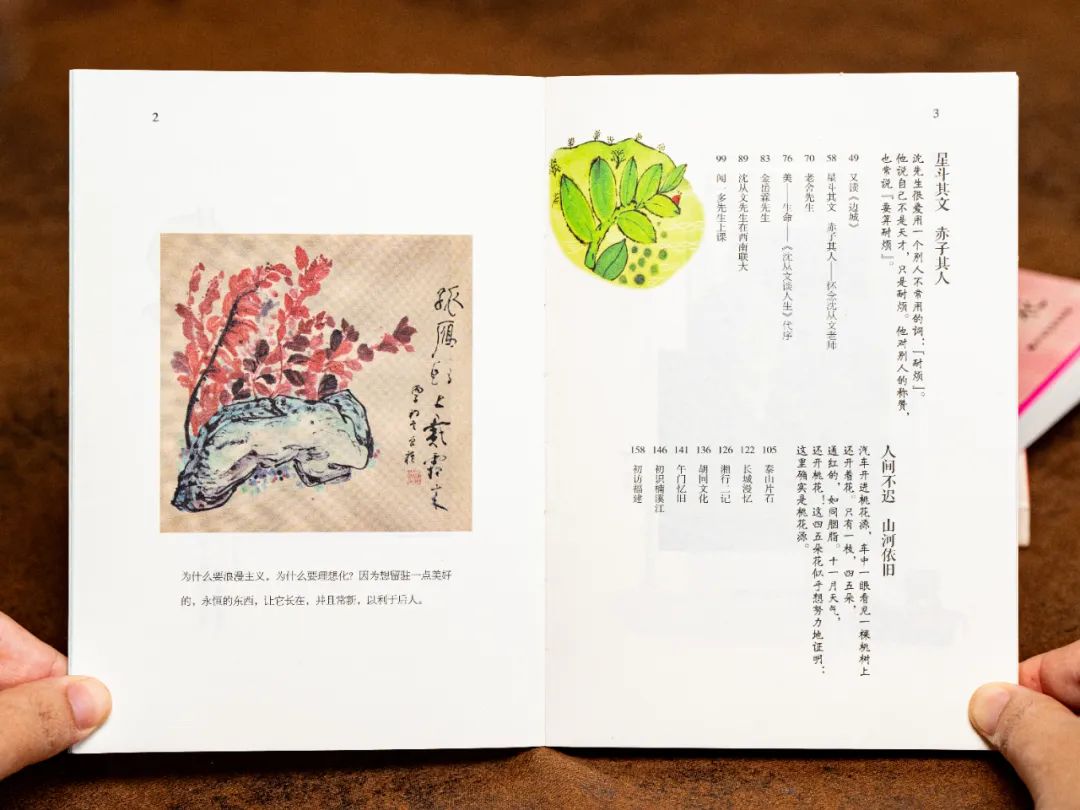 2
为什么要浪漫主义,为什么要理想化?因为想留驻一点美好
的,永恒的东西,让它长在,并且常新,以利于后人。
3
星斗其文 赤子其人
沈先生很爱用一个别人不常用的词:『耐烦』。
他说自己不是天才,只是耐烦。他对别人的称赞,
也常说『要算耐烦』。
49 又读《边城》
58 星斗其文 赤子其人——怀念沈从文老师
70 老舍先生
76 美——生命——《沈从文谈人生》代序
83 金岳霖先生
89 沈从文先生在西南联大
99 闻一多先生上课
人间不迟 山河依旧
汽车开进桃花源,车中一眼看见一棵桃树上
还开着花。只有一枝,四五朵,
通红的,如同胭脂。十一月天气,
还开桃花!这四五朵花似乎想努力地证明:
这里确实是桃花源。
105 泰山片石
122 长城漫忆
126 湘行二记
136 胡同文化
141 午门忆旧
146 初识楠溪江
158 初访福建